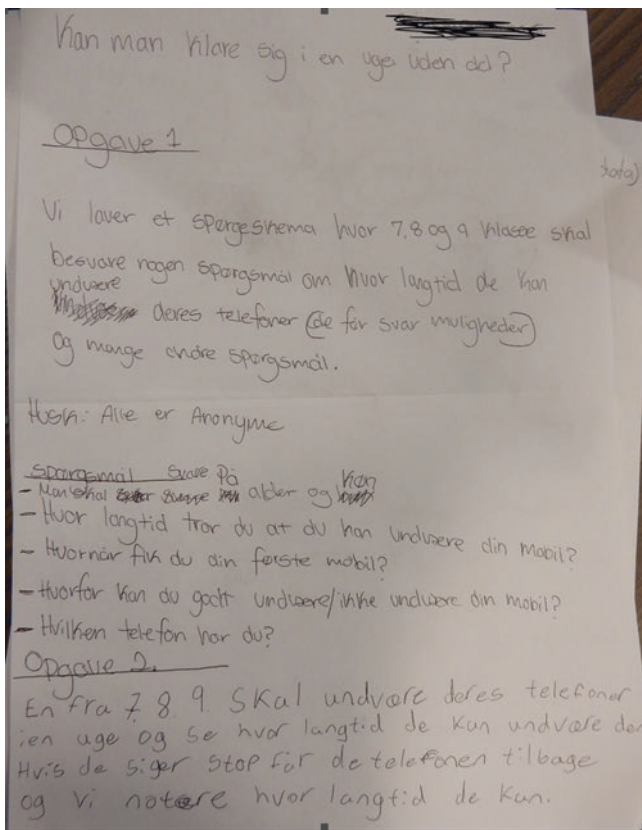 Kan man klare sig i en uge uden dd?
Opgave 1
data)
Vi laver et spørgeskema hvor 7,8 og 9 klasse skal
besvare nogen spørgsmål om hvor langtid de kan
undvære
deres telefoner (de får svar muligheder)
og mange andre spørgsmål.
Husk: Alle er Anonyme
Spørgsmål Svare På
- Man skal alder og køn
- Hvor langtid tror du at du kan undvære din mobil?
- Hvornår fik du din første mobil?
- Hvorfor kan du godt undvære/ikke undvære din mobil?
- Hvilken telefon har du?
Opgave 2.
En fra 7. 8. 9. Skal undvære deres telefoner
i en uge og se hvor langtid de kan undvære den
Hvis de siger stop får de telefonen tilbage
og vi notere hvor langtid de kan.